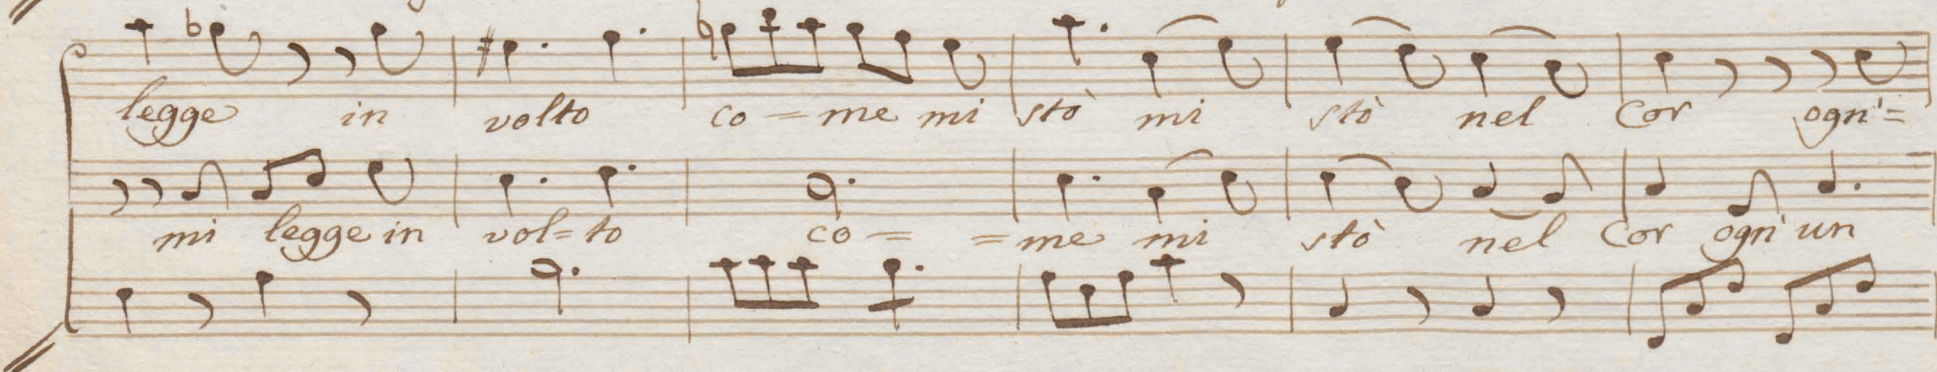 legge in volto co = me mi stò mi stò nel Cor ogn'=
mi legge in vol= to co = = me mi stò nel Cor ogn' un